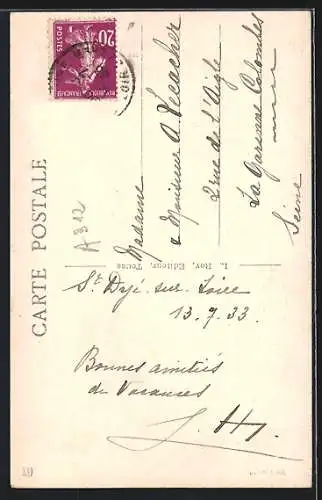 CARTE POSTALE
POSTES
20
REPUBLIQUE FRANCAISE
LOIR
A 312
Madame
& Monsieur A. Lecacher
2 rue de l'Aigle
La Garenne Colombes
Seine
L. Roy, Editeur, Tours
St Dyé-sur-Loire
13.9.33.
Bonnes amitiés
de Vacances